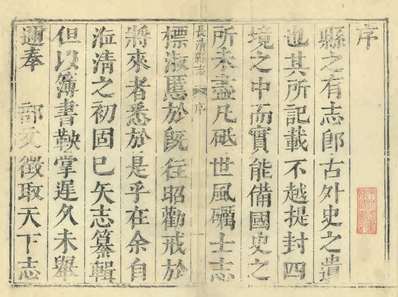 序
縣之有志卽古外史之遺
也其所記載不越提封四
境之中而實能備國史之
所未盡凡砥世風礪士志
長清縣志 序
標淑慝於旣往昭勸戒於
將來者悉於是乎在余自
涖清之初固已矢志纂輯
但以簿書鞅掌遲久未舉
適奉 部文徵取天下志